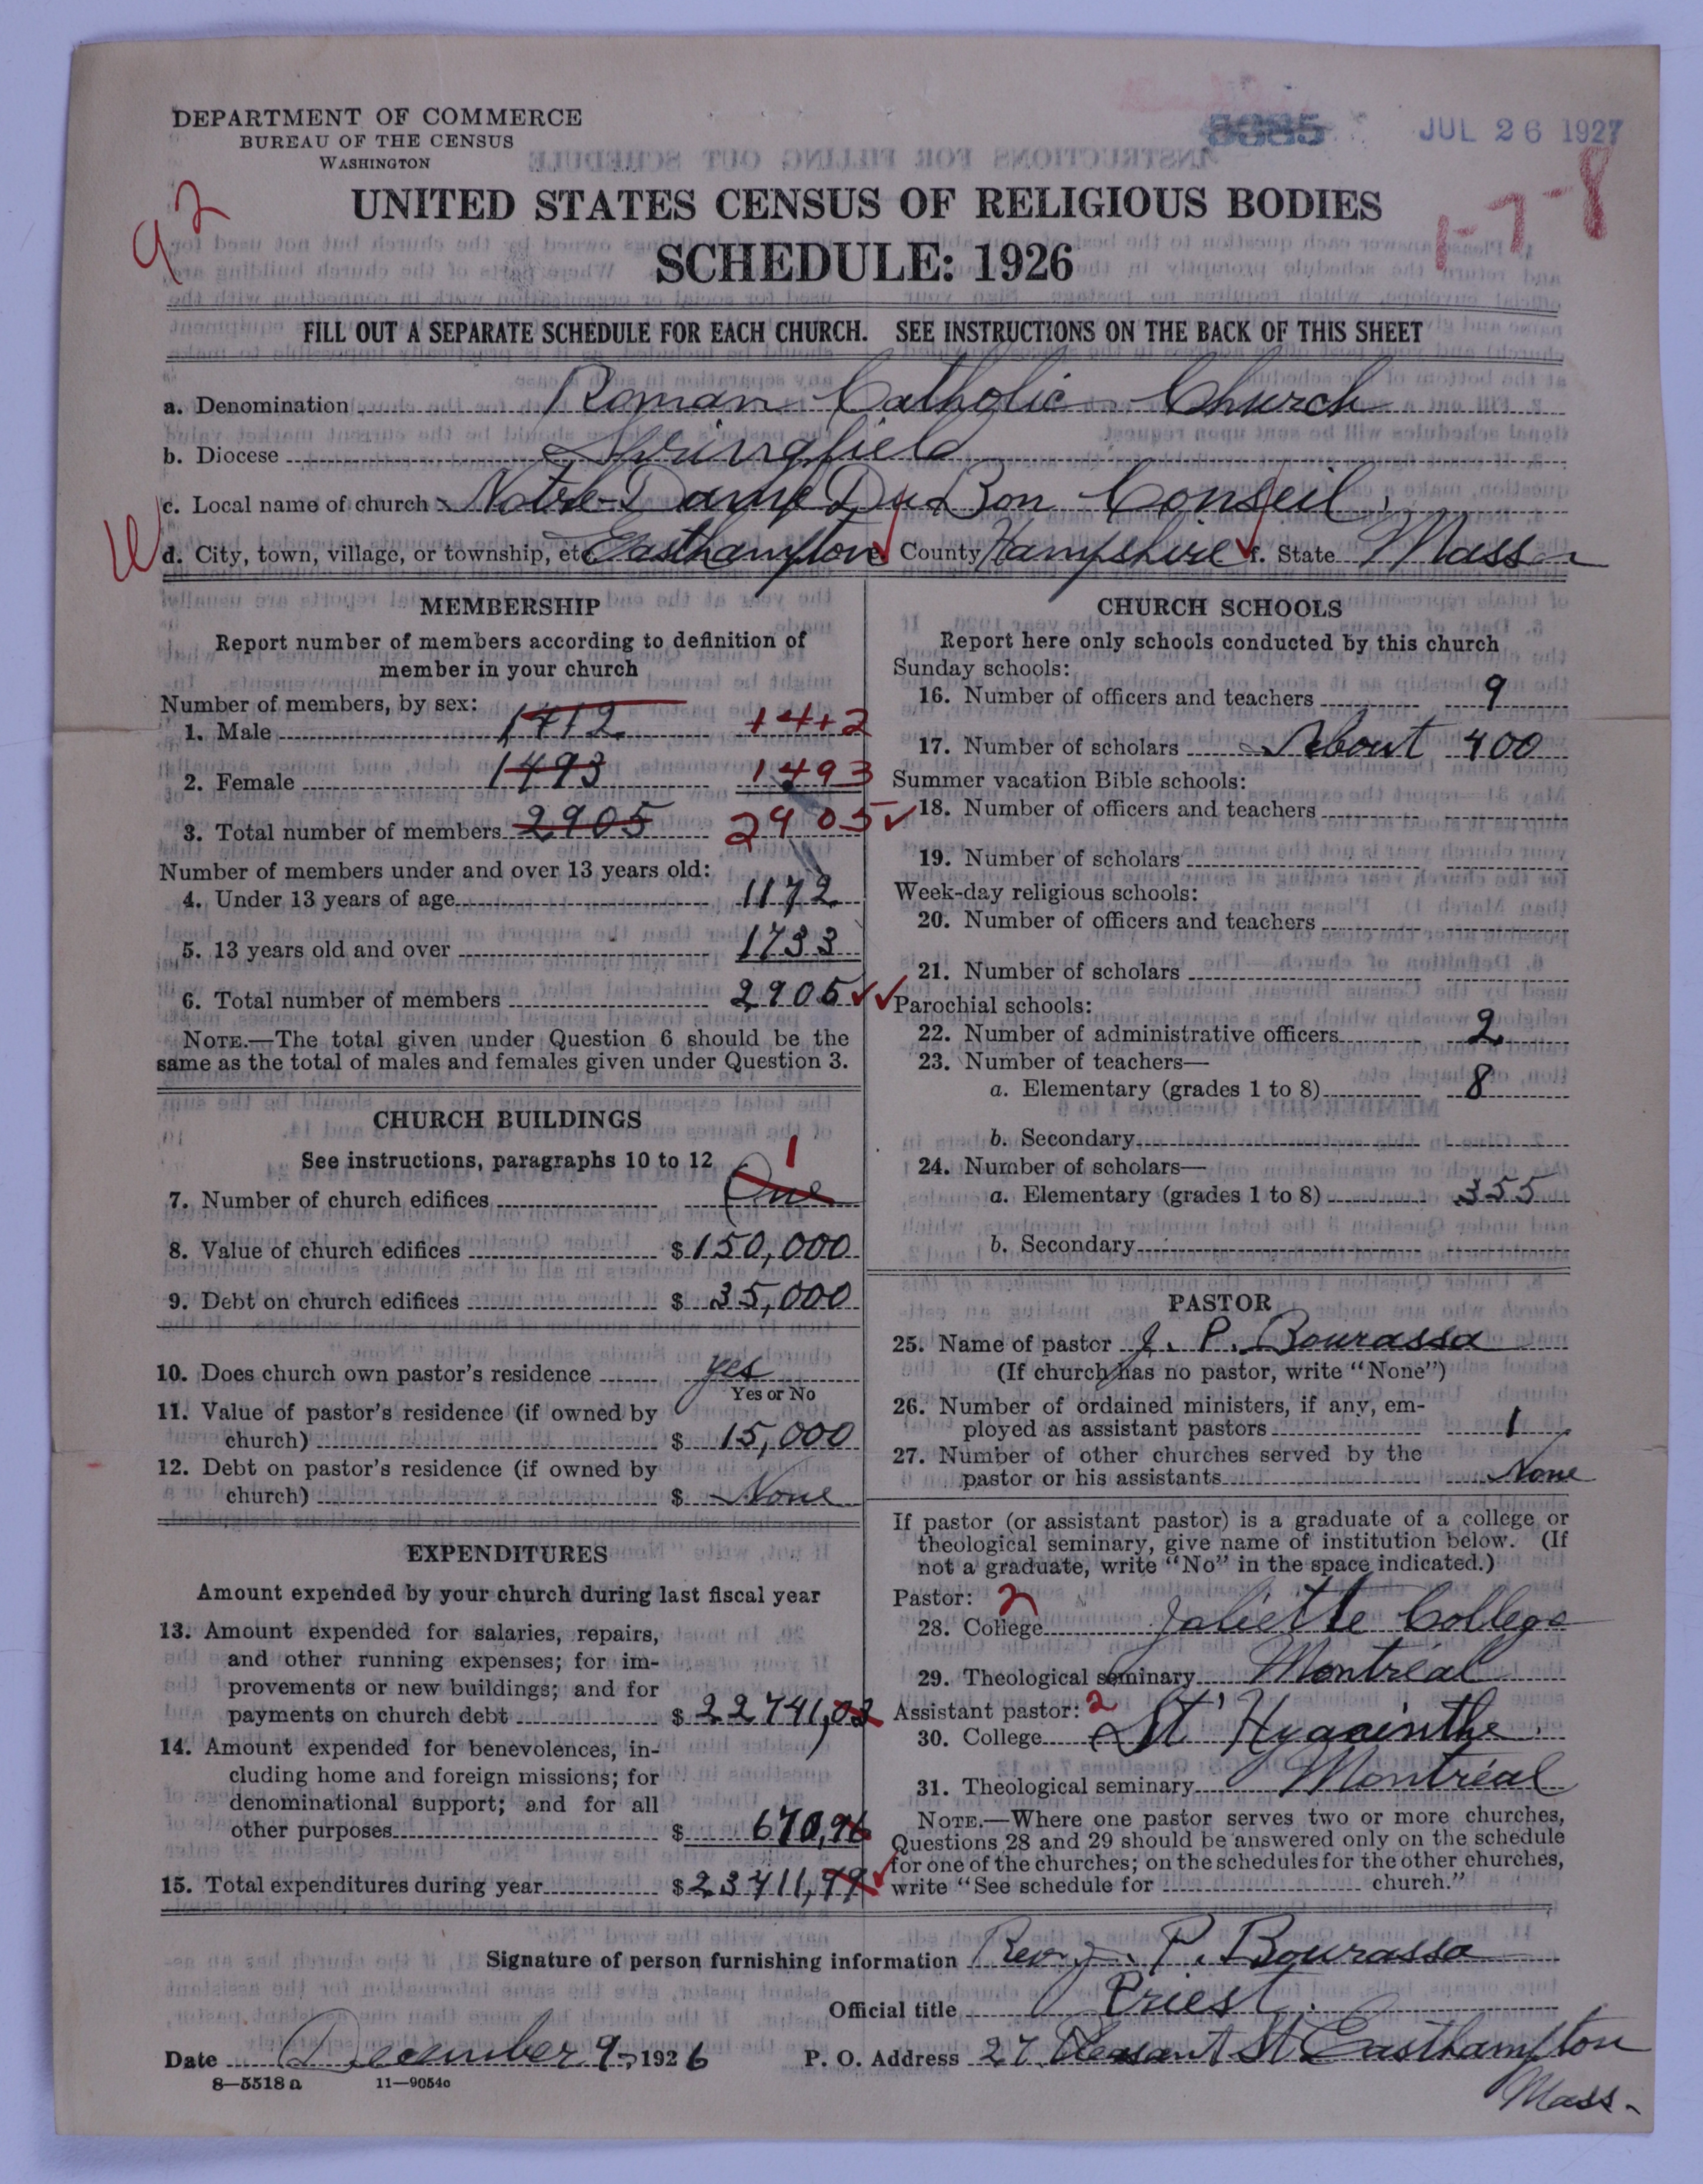 DEPARTMENT OF COMMERCE
BUREAU OF THE CENSUS
WASHINGTON
8085
JUL 26 1927
92
1-7-8
UNITED STATES CENSUS OF RELIGIOUS BODIES
SCHEDULE: 1926
FILL OUT A SEPARATE SCHEDULE FOR EACH CHURCH. SEE INSTRUCTIONS ON THE BACK OF THIS SHEET
a. Denomination Roman Catholic Church
b. Diocese Springfield
c. Local name of church Notre-Dame Du Bon Conseil,
d. City, town, village, or township, etc. Easthampton e. County Hampshire f. State Mass
MEMBERSHIP
Report number of members according to definition of
member in your church
Number of members, by sex:
1. Male 1412 1412
2. Female 1493 1493
3. Total number of members 2905 2905
Number of members under and over 13 years old:
4. Under 13 years of age 1172
5. 13 years old and over 1733
6. Total number of members 2905
NOTE.—The total given under Question 6 should be the
same as the total of males and females given under Question 3.
CHURCH BUILDINGS
See instructions, paragraphs 10 to 12
7. Number of church edifices One 1
8. Value of church edifices $ 150,000
9. Debt on church edifices $ 35,000
10. Does church own pastor's residence yes
Yes or No
11. Value of pastor's residence (if owned by
church) $ 15,000
12. Debt on pastor's residence (if owned by
church) $ None
EXPENDITURES
Amount expended by your church during last fiscal year
13. Amount expended for salaries, repairs,
and other running expenses; for im-
provements or new buildings; and for
payments on church debt $ 22741,03
14. Amount expended for benevolences, in-
cluding home and foreign missions; for
denominational support; and for all
other purposes $ 670,96
15. Total expenditures during year $ 23411,99
CHURCH SCHOOLS
Report here only schools conducted by this church
Sunday schools:
16. Number of officers and teachers 9
17. Number of scholars About 400
Summer vacation Bible schools:
18. Number of officers and teachers
19. Number of scholars
Week-day religious schools:
20. Number of officers and teachers
21. Number of scholars
Parochial schools:
22. Number of administrative officers 2
23. Number of teachers—
a. Elementary (grades 1 to 8) 8
b. Secondary
24. Number of scholars—
a. Elementary (grades 1 to 8) 355
b. Secondary
PASTOR
25. Name of pastor J. P. Bourassa
(If church has no pastor, write "None")
26. Number of ordained ministers, if any, em-
ployed as assistant pastors 1
27. Number of other churches served by the
pastor or his assistants None
If pastor (or assistant pastor) is a graduate of a college or
theological seminary, give name of institution below. (If
not a graduate, write "No" in the space indicated.)
Pastor: 2
28. College Joliette College
29. Theological seminary Montréal
Assistant pastor: 2
30. College St' Hyacinthe
31. Theological seminary Montréal
NOTE.—Where one pastor serves two or more churches,
Questions 28 and 29 should be answered only on the schedule
for one of the churches; on the schedules for the other churches,
write "See schedule for church."
Signature of person furnishing information Rev. J. P. Bourassa
Official title Priest.
Date December 9, 1926 P. O. Address 27 Pleasant St Easthampton
Mass.
8—5518 a 11—9054c